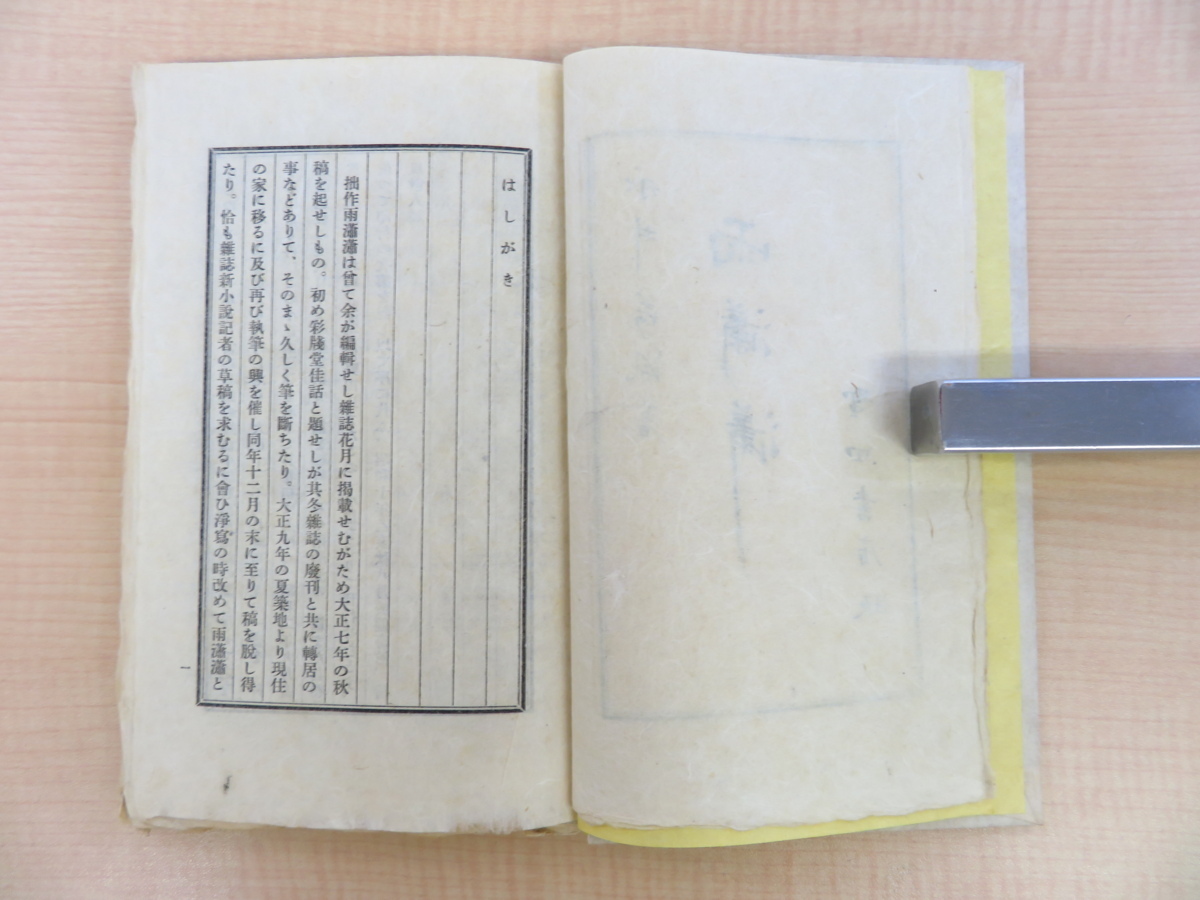 はしがき
拙作雨瀟瀟は曾て余が編輯せし雜誌花月に掲載せむがため大正七年の秋
稿を起せしもの。初め彩牋堂佳話と題せしが其冬雜誌の廢刊と共に轉居の
事などありて、そのまゝ久しく筆を斷ちたり。大正九年の夏築地より現住
の家に移るに及び再び執筆の興を催し同年十二月の末に至りて稿を脫し得
たり。恰も雜誌新小說記者の草稿を求むるに會ひ淨寫の時改めて雨瀟瀟と
一
雨瀟瀟